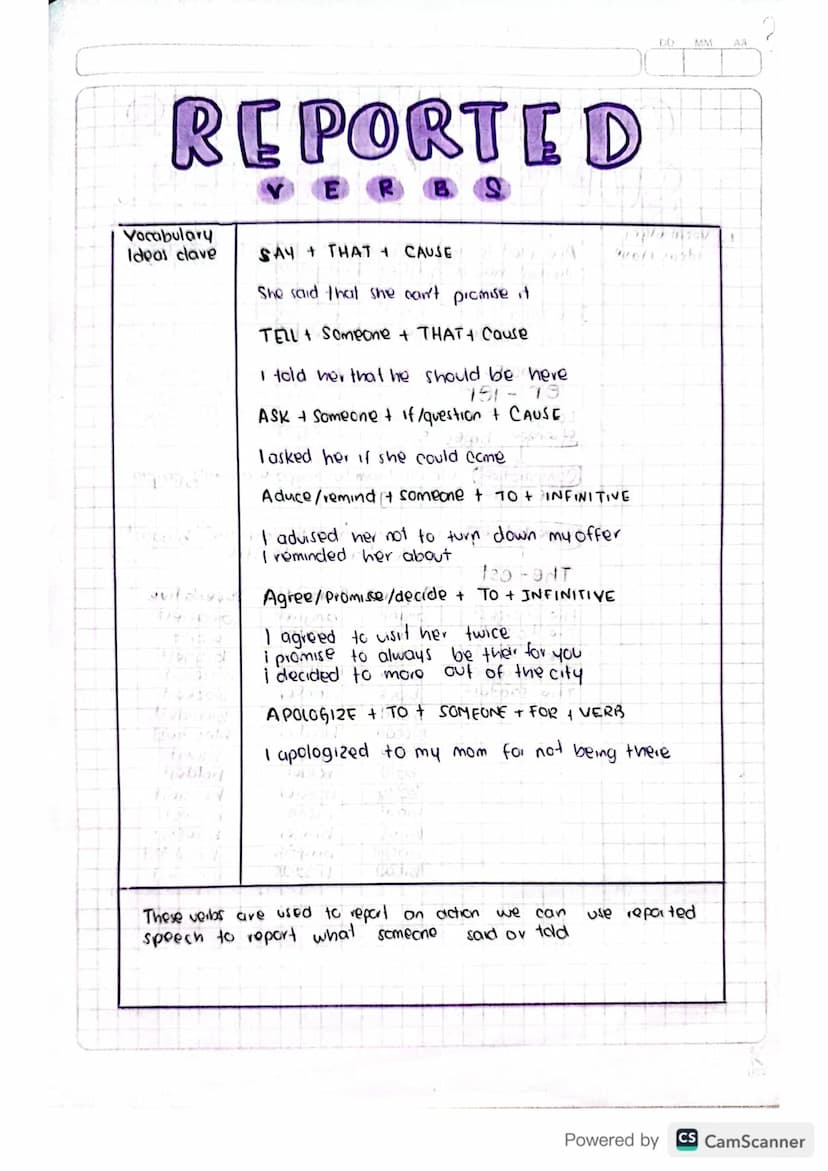 DD MM AA
REPORTED
VERBS
Vocabulary
Ideas clave
SAY + THAT + CAUSE
She said that she can't promise it
TELL + Someone + THAT + Cause
I told her that he should be here
ASK + Someone + if/question + CAUSE
I asked her if she could come
Aduce/remind + someone + TO + INFINITIVE
I advised her not to turn down my offer
I reminded her about
Agree/Promise/decide + TO + INFINITIVE
I agreed to visit her twice
i promise to always be their for you
i decided to more out of the city
APOLOGIZE + TO + SOMEONE + FOR + VERB
I apologized to my mom for not being there
These verbs are used to report an action we can use reported
speech to report what someone said or told
Powered by CS CamScanner